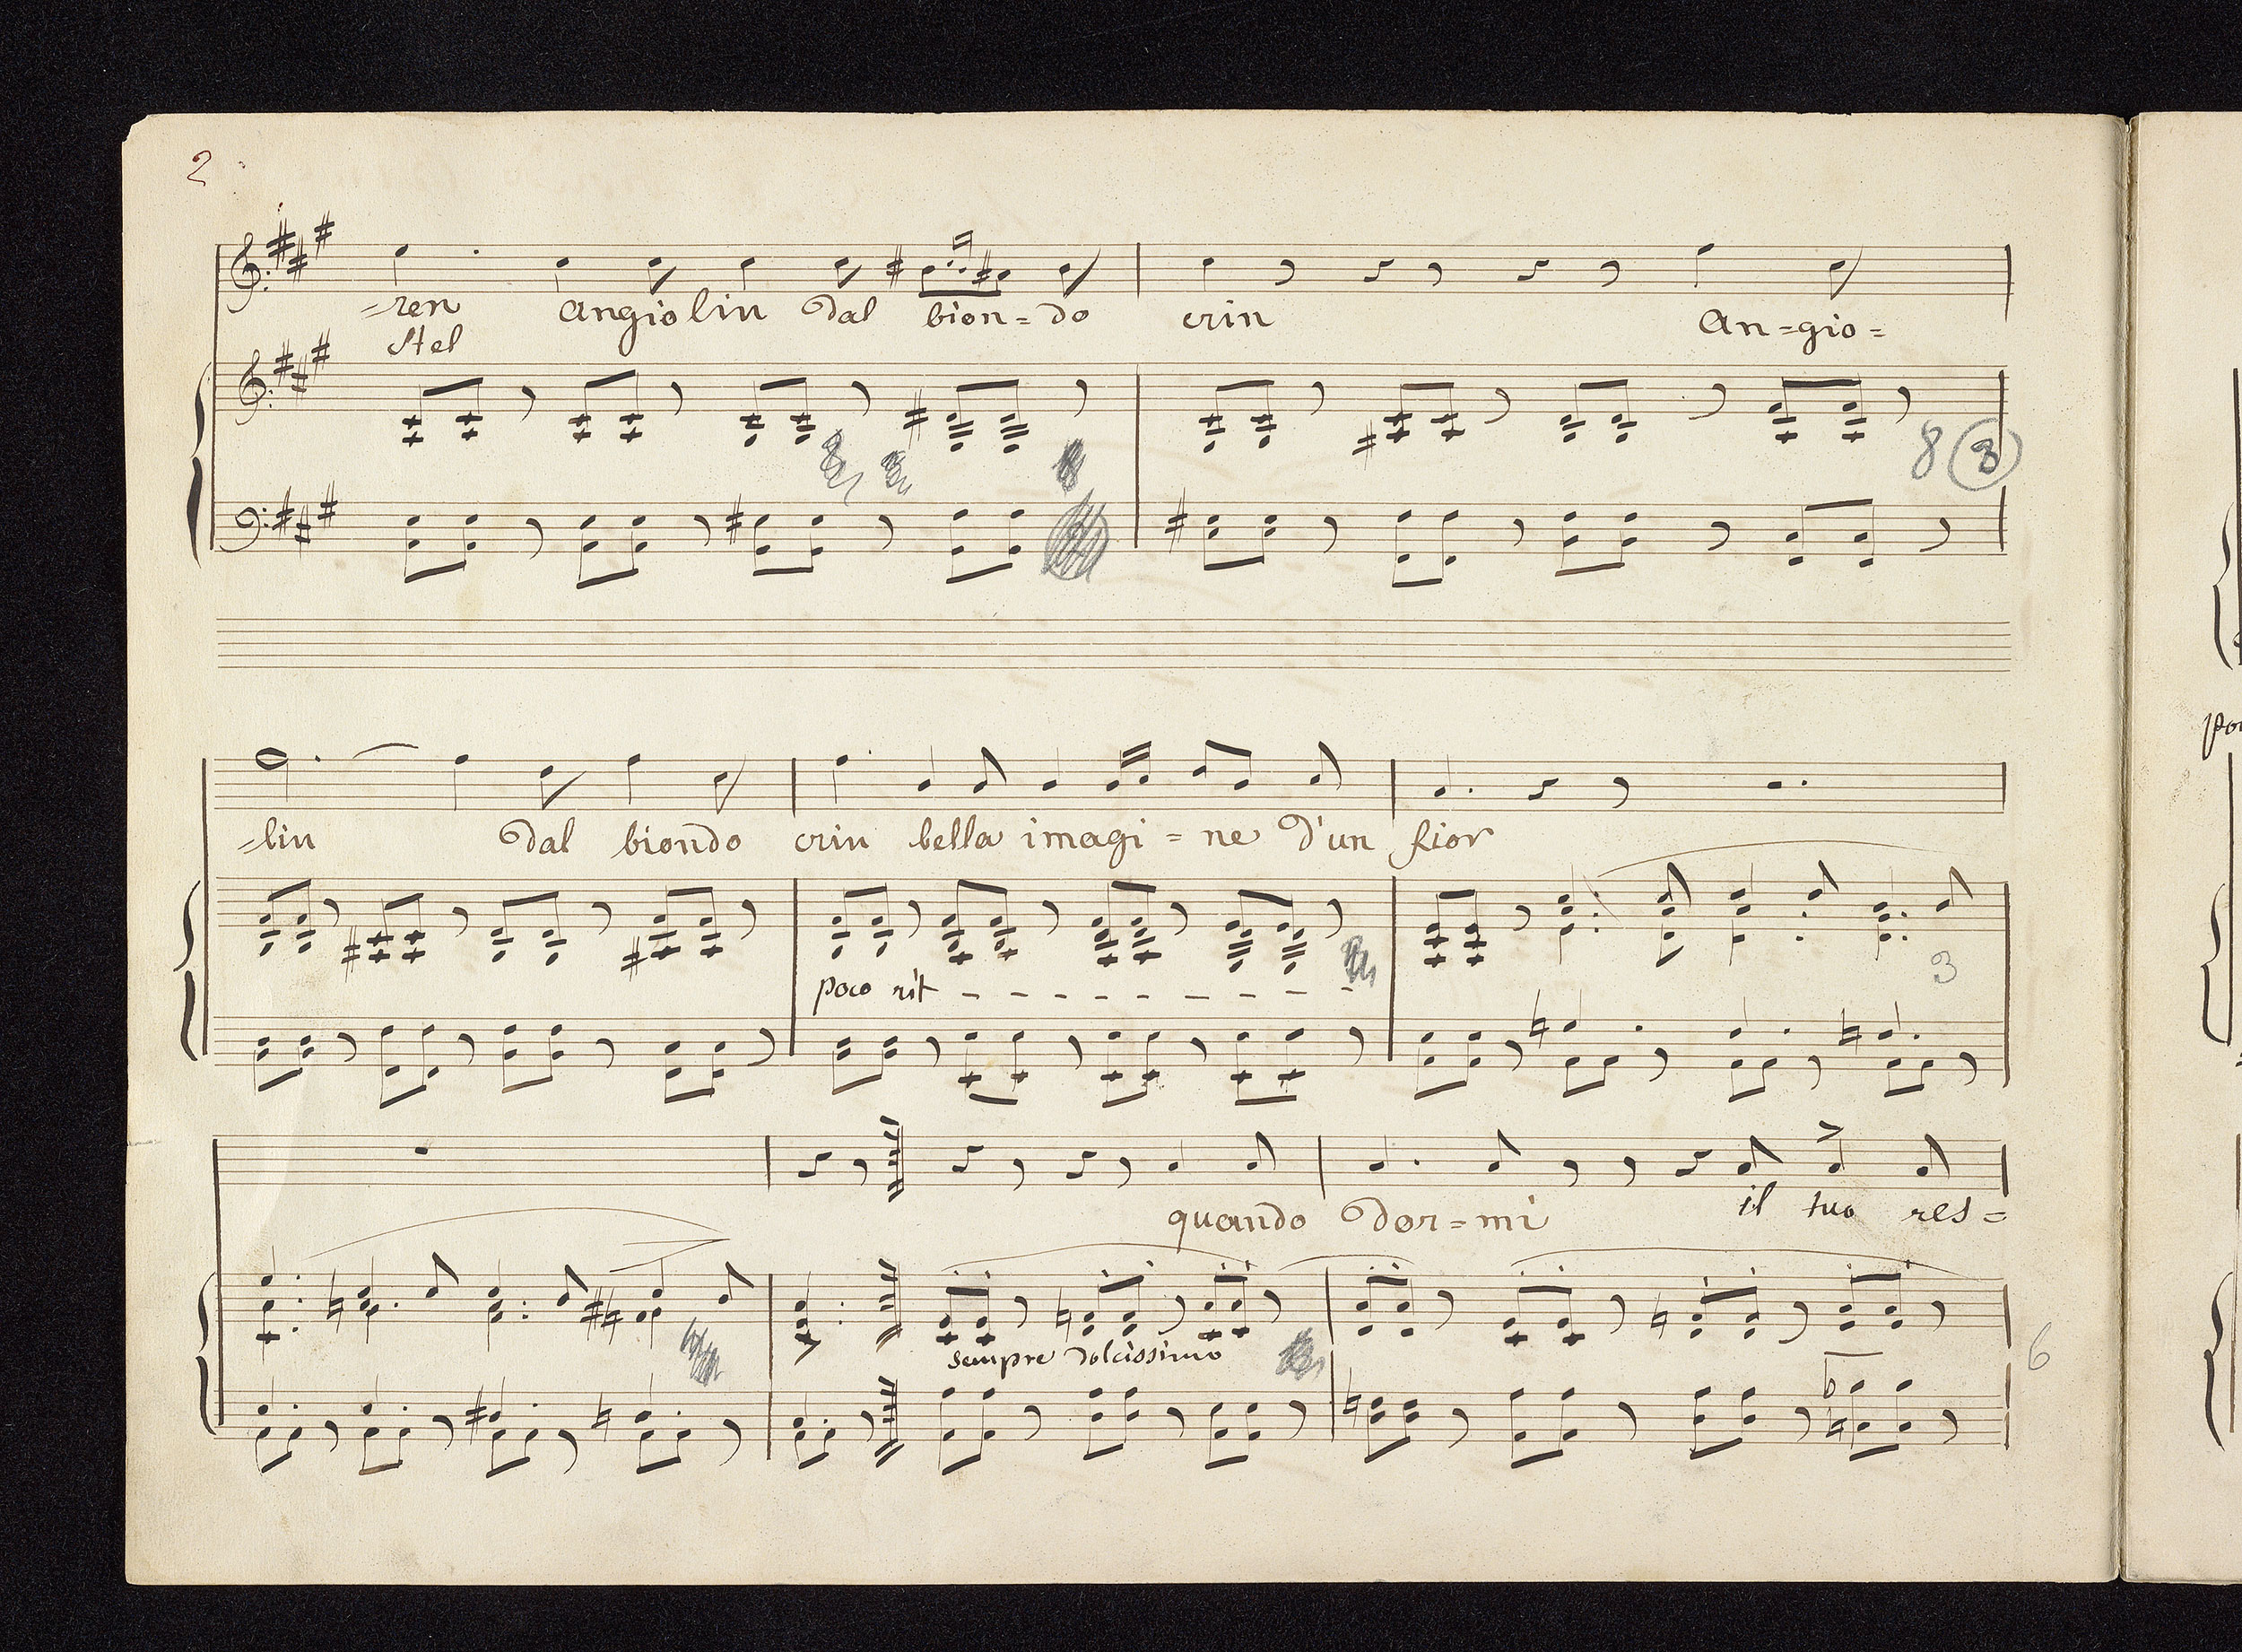 2
=ren angiolin dal bion=do crin An=gio=
Stel
8 8
=lin dal biondo crin bella imagi=ne d'un fior
poco rit
3
quando dor=mi il tuo res=
sempre dolcissimo
6